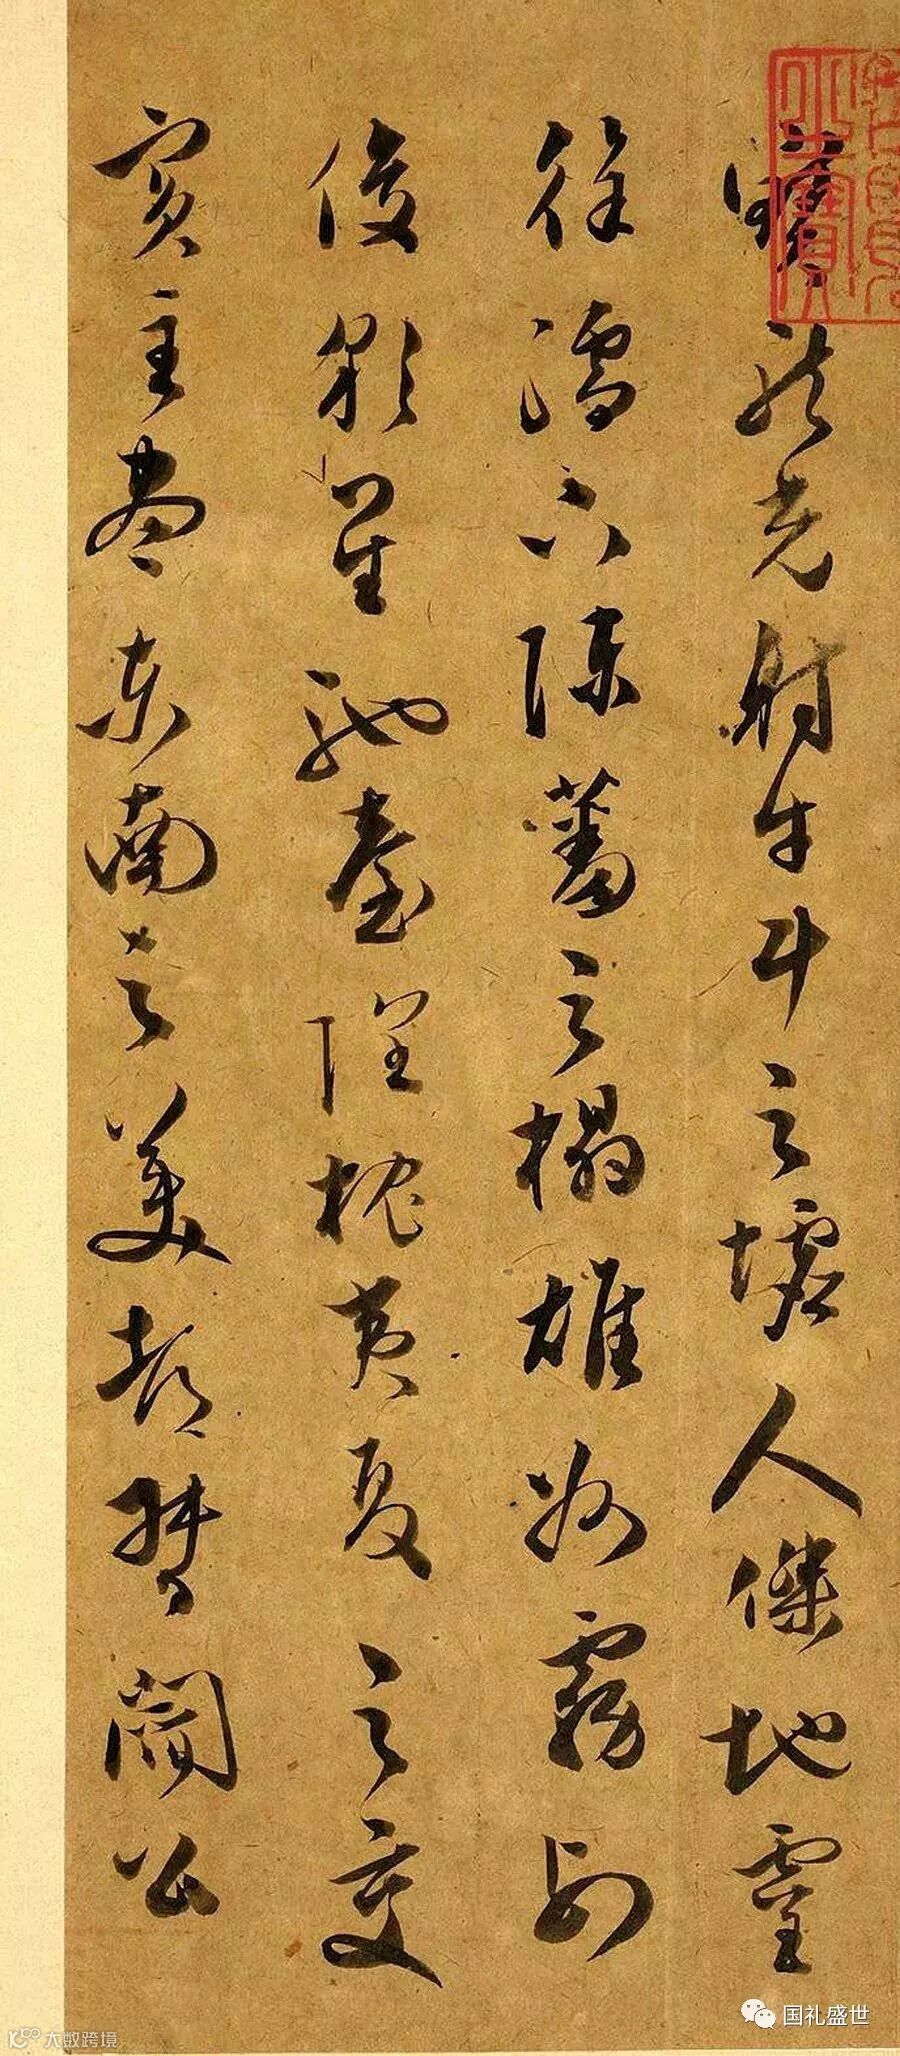 寶龍光射牛斗之墟人傑地靈
徐濡下陳蕃之榻雄州霧列
俊彩星馳臺隍枕夷夏之交
賓主盡東南之美都督閻公
国礼盛世
大数跨境